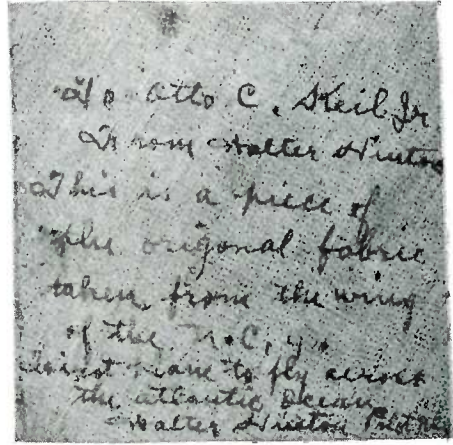 To Otto C. Keil Jr
From Walter Hinton
This is a piece of
the origonal fabric
taken from the wing
of the N.C. 4.
First plane to fly across
the atlantic ocean
Walter Hinton Pilot